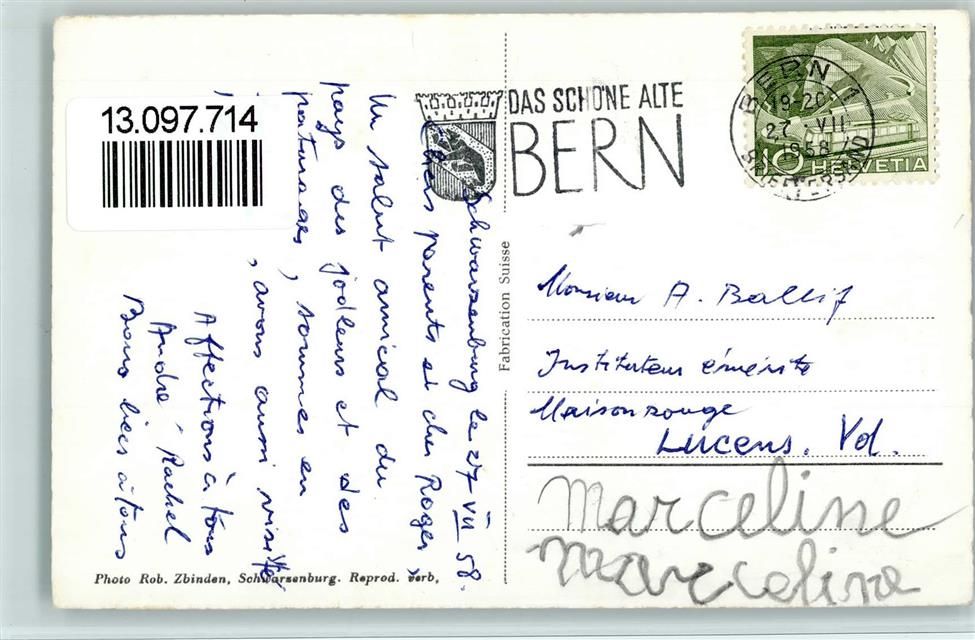 13.097.714
DAS SCHÖNE ALTE
BERN
BERN 1
19-20
27. VII
1958
BRIEFVERSAND
10 HELVETIA
Schwarzenburg le 27 VII 58.
Chers parents et cher Roger,
Un salut amical du
pays des jodleurs et des
paturages, sommes en
, avons aussi visité
Affections à tous
André Rachel
Bons à tous
Fabrication Suisse
Monsieur A. Ballif
Instituteur émérite
Maison rouge
Lucens. Vd.
Marceline
Marceline
Photo Rob. Zbinden, Schwarzenburg. Reprod. verb,